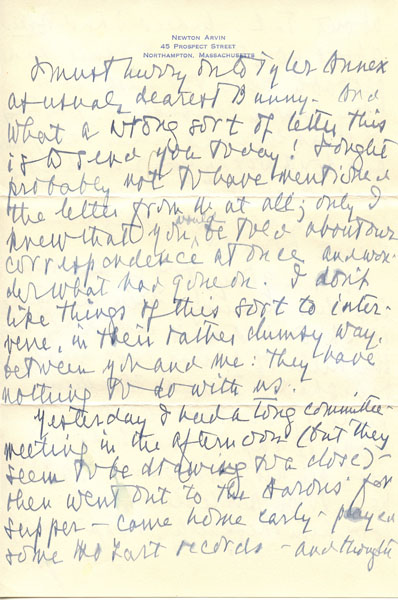 NEWTON ARVIN
45 PROSPECT STREET
NORTHAMPTON, MASSACHUSETTS
I must hurry on to Tyler Annex
as usual, dearest Bunny. And
what a wrong sort of letter this
is to send you today! I ought
probably not to have mentioned
the letter from at all; only I
knew that you would be told about our
correspondence at once and won-
der what had gone on. I don't
like things of this sort to inter-
vene, in their rather clumsy way,
between you and me: they have
nothing to do with us.
Yesterday I had a long committee-
meeting in the afternoon (but they
seem to be drawing to a close) -
then went out to the Aarons' for
supper - came home early - played
some Mozart records - and thought